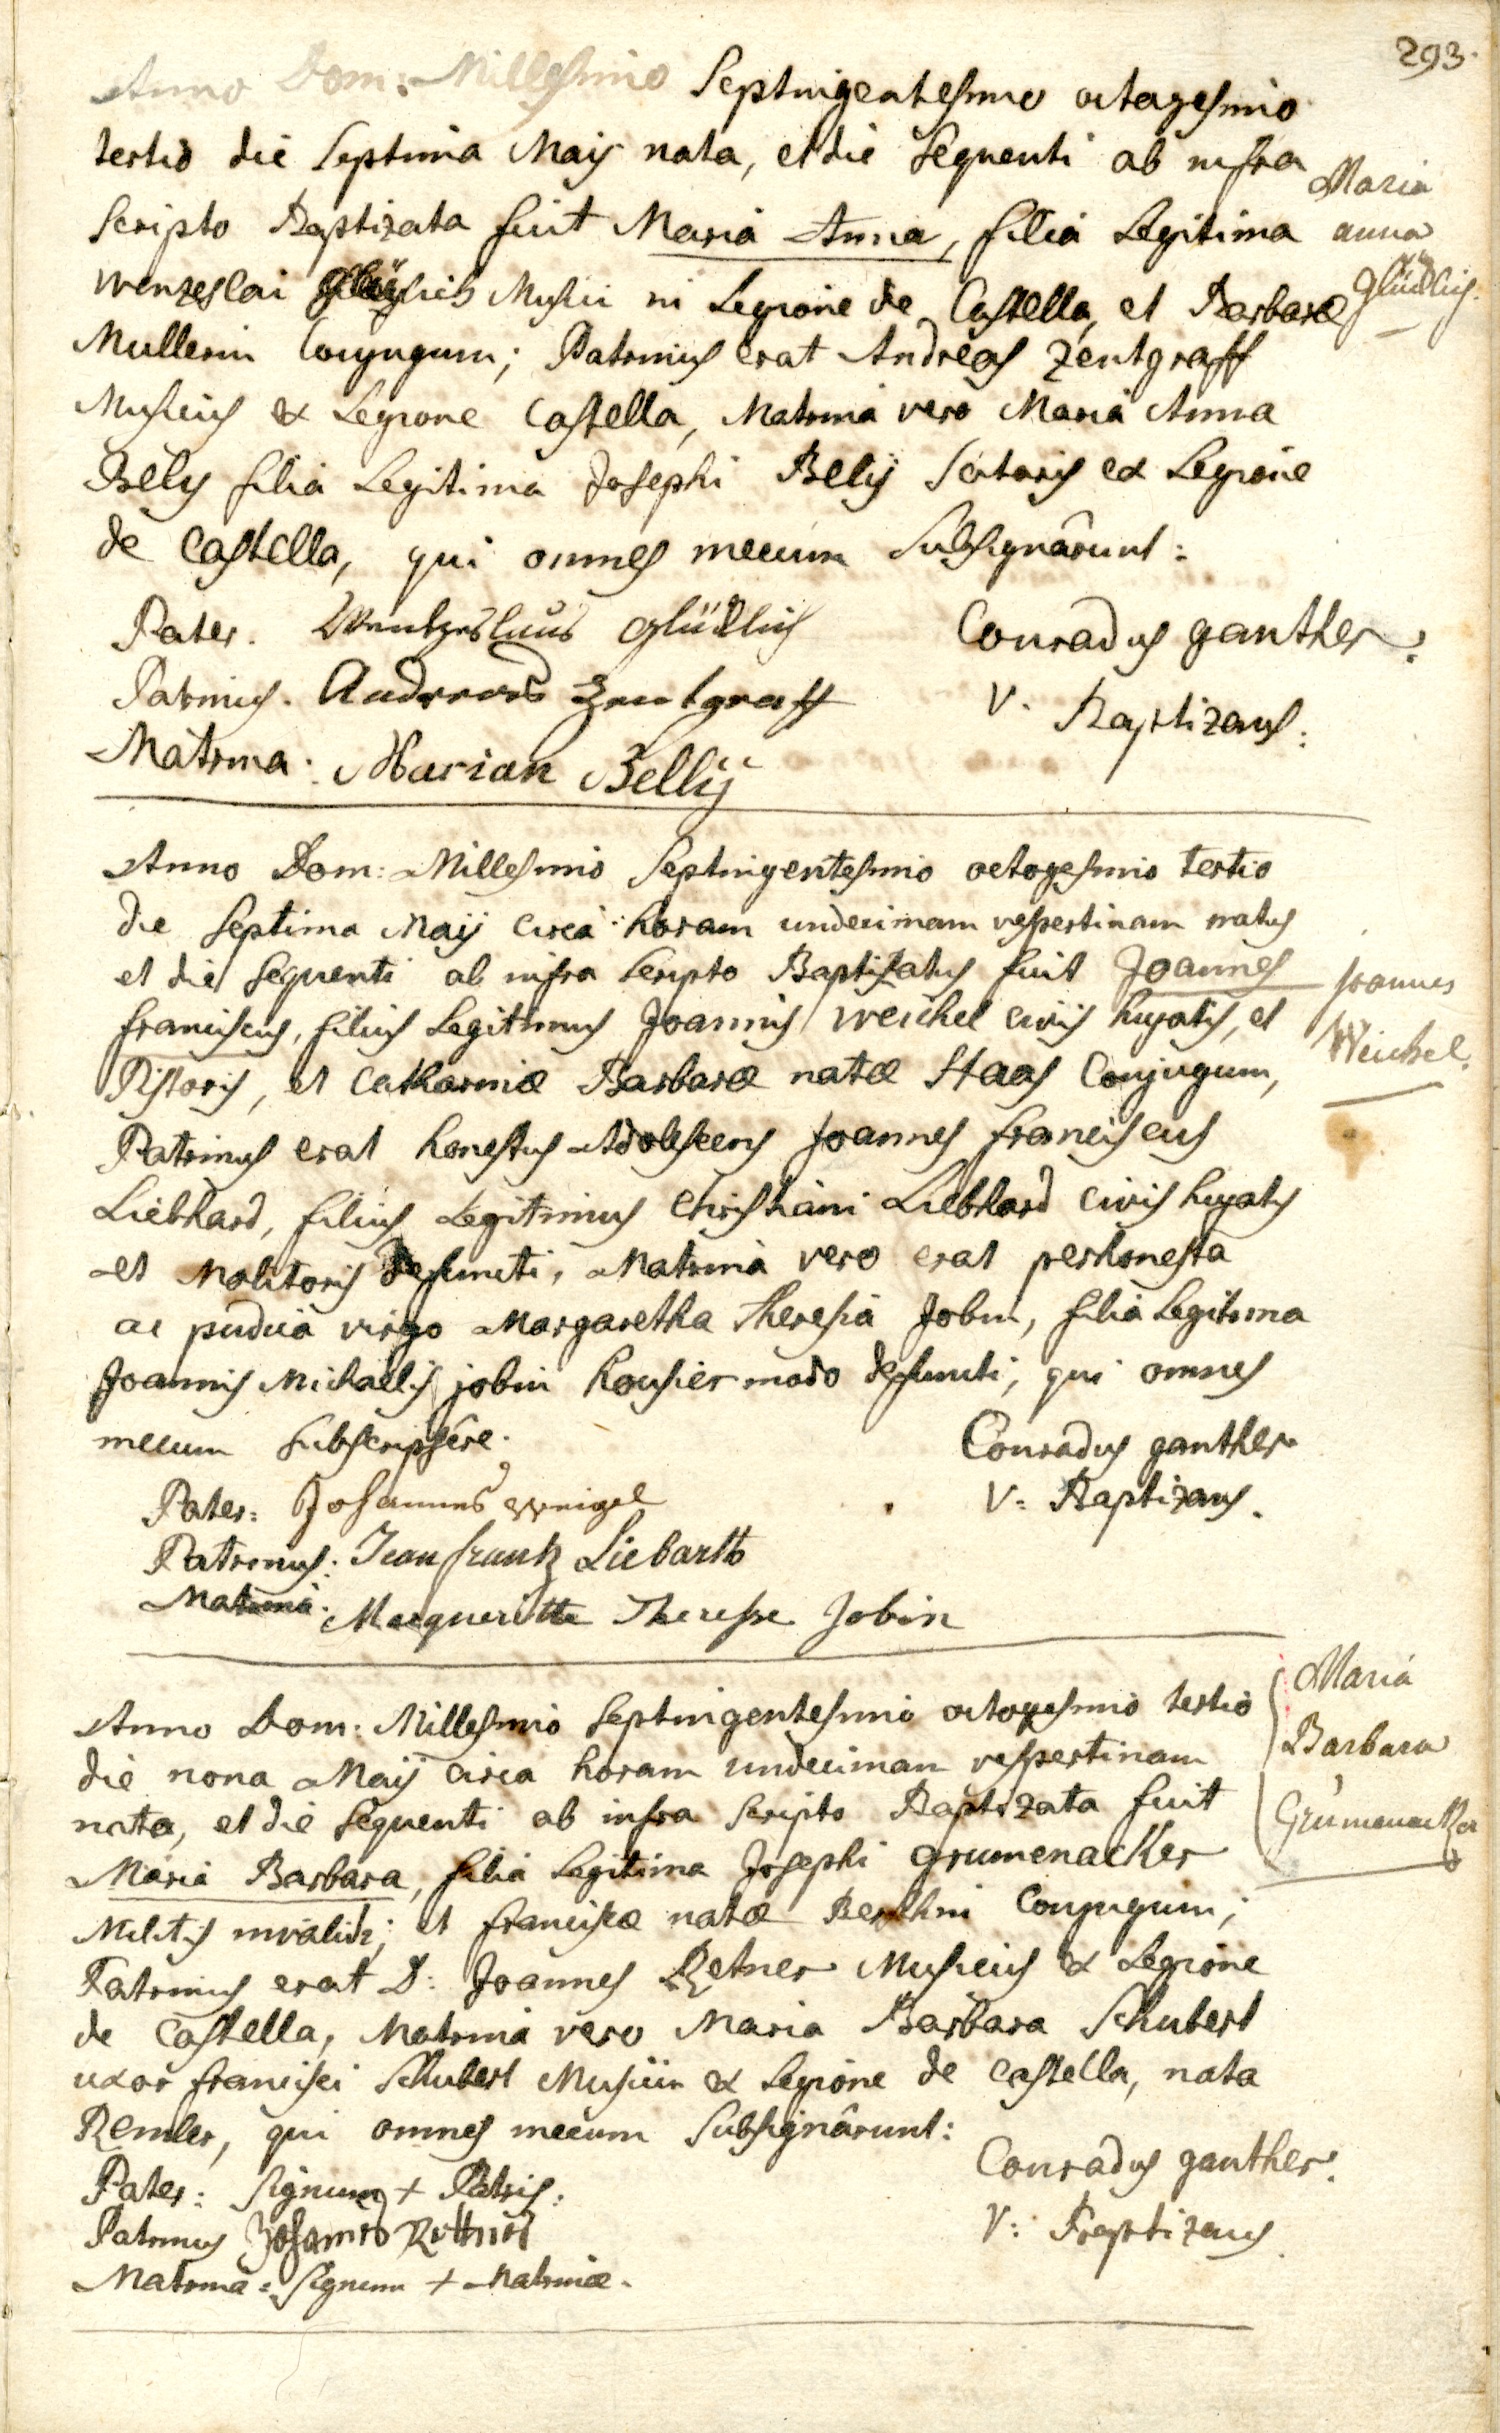 293.
Anno Dom: Millesimo Septingentesimo octogesimo
tertio die Septima Maij nata, et die sequenti ab infra
scripto Baptizata fuit Maria Anna, filia Legitima
Wenzeslai Musici in Legione de Castella, et Barbaræ
Mullerin Conjugum; Patrinus erat Andreas Zentgraff
Musicus ex Legione Castella, Matrina vero Maria Anna
Bely filia Legitima Josephi Belij Sutoris ex Legione
de Castella, qui omnes mecum Subsignârunt:
Maria
anna
glücklich.
Pater. Wentzeslaus glücklich
Patrinus. Andreas Zentgraff
Matrina: Marian Bellij
Conradus ganther.
V. Baptizans:
Anno Dom: Millesimo Septingentesimo octogesimo tertio
die Septima Maij circa horam undecimam vespertinam natus
et die sequenti ab infra scripto Baptisatus fuit Joannes
franciscus, filius Legitimus Joannis Weichel civis hujatis, et
Pistoris, et Catharinæ Barbaræ natæ Staas Conjugum,
Patrinus erat honestus Adolescens Joannes franciscus
Liebhard, filius Legitimus Christiani Liebhard civis hujatis
et Molitoris defuncti, Matrina vero erat perhonesta
ac pudica virgo Margaretha Theresia Jobin, filia Legitima
Joannis Michaelis jobin housier modo defuncti, qui omnes
mecum subscripsêre.
Joannes
Weichel.
Pater: Johannes Weigel
Patrinus: Jean frantz Liebarth
Matrina: Margueritte Theresse Jobin
Conradus ganther
V: Baptizans.
Anno Dom: Millesimo Septingentesimo octogesimo tertio
die nona Maij circa horam undeciman vespertinam
nata, et die sequenti ab infra scripto Baptizata fuit
Maria Barbara, filia Legitima Josephi Grumenacker
Militis invalidi; et franciscæ natæ Conjugum;
Patrinus erat D: Joannes Retner Musicus ex Legione
de Castella, Matrina vero Maria Barbara Schubert
uxor francisci Schubert Musici ex Legione de Castella, nata
Remler, qui omnes mecum Subsignârunt:
Maria
Barbara
Grumenacker
Pater: Signum + Patris:
Patrinus Johannes Rettner
Matrina: Signum + Matrinæ.
Conradus ganther.
V: Baptizans